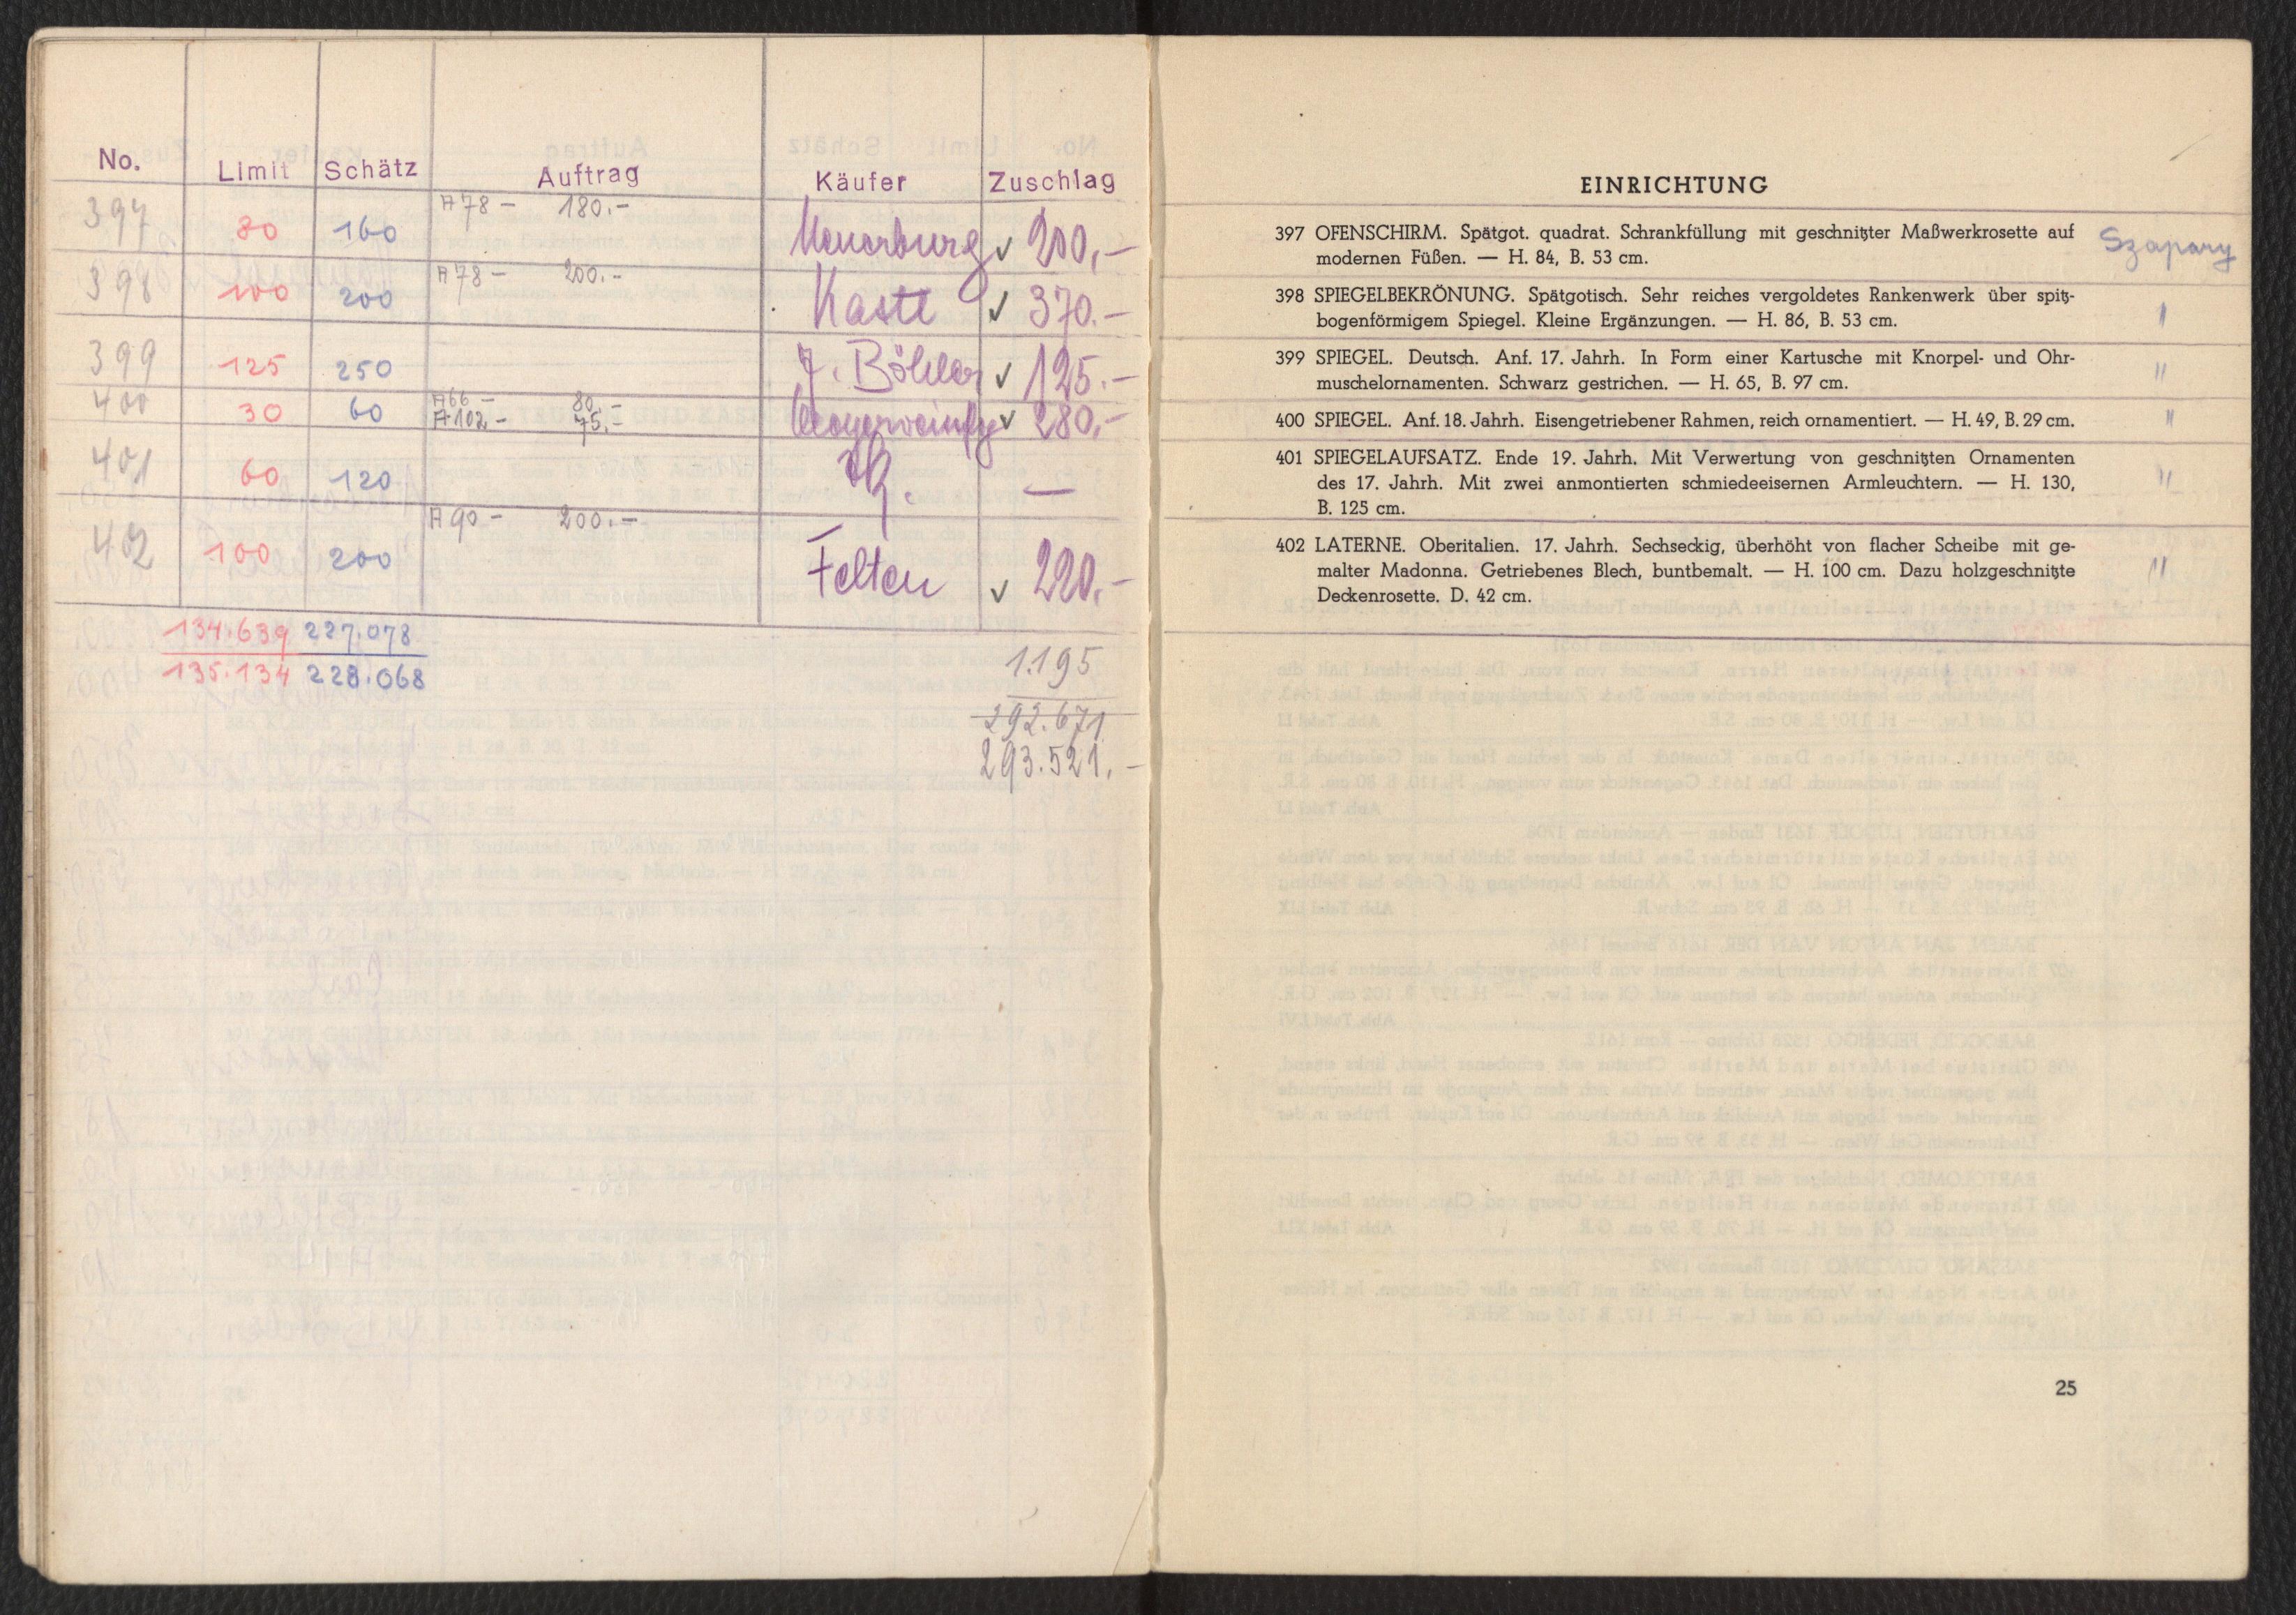 No. Limit Schätz Auftrag Käufer Zuschlag
397 80 160 A 78 – 180.– ✓ 200,–
398 100 200 A 78 – 200.– Kaste ✓ 370.–
399 125 250 J. Böhler ✓ 125.–
400 30 60 A 66 – 80.– ✓ 280,–
A 102.– 75.–
401 60 120 —
402 100 200 A 90 – 200.– Felten ✓ 220.–
134.639 227.078
135.134 228.068
1.195
292.671
293.521.–
EINRICHTUNG
397 OFENSCHIRM. Spätgot. quadrat. Schrankfüllung mit geschnitzter Maßwerkrosette auf Szapary
modernen Füßen. — H. 84, B. 53 cm.
398 SPIEGELBEKRÖNUNG. Spätgotisch. Sehr reiches vergoldetes Rankenwerk über spitz- "
bogenförmigem Spiegel. Kleine Ergänzungen. — H. 86, B. 53 cm.
399 SPIEGEL. Deutsch. Anf. 17. Jahrh. In Form einer Kartusche mit Knorpel- und Ohr- "
muschelornamenten. Schwarz gestrichen. — H. 65, B. 97 cm.
400 SPIEGEL. Anf. 18. Jahrh. Eisengetriebener Rahmen, reich ornamentiert. — H. 49, B. 29 cm. "
401 SPIEGELAUFSATZ. Ende 19. Jahrh. Mit Verwertung von geschnitzten Ornamenten "
des 17. Jahrh. Mit zwei anmontierten schmiedeeisernen Armleuchtern. — H. 130,
B. 125 cm.
402 LATERNE. Oberitalien. 17. Jahrh. Sechseckig, überhöht von flacher Scheibe mit ge- "
malter Madonna. Getriebenes Blech, buntbemalt. — H. 100 cm. Dazu holzgeschnitzte
Deckenrosette. D. 42 cm.
25